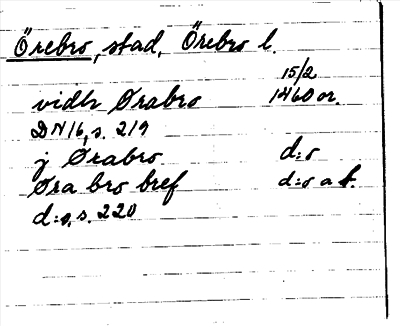 Örebro, stad, Örebro l.
15/2
vidh Ørabro 1460 or.
DN 16, s. 219
j Ørabro d:o
Øra bro bref d:o a f.
d:o, s. 220